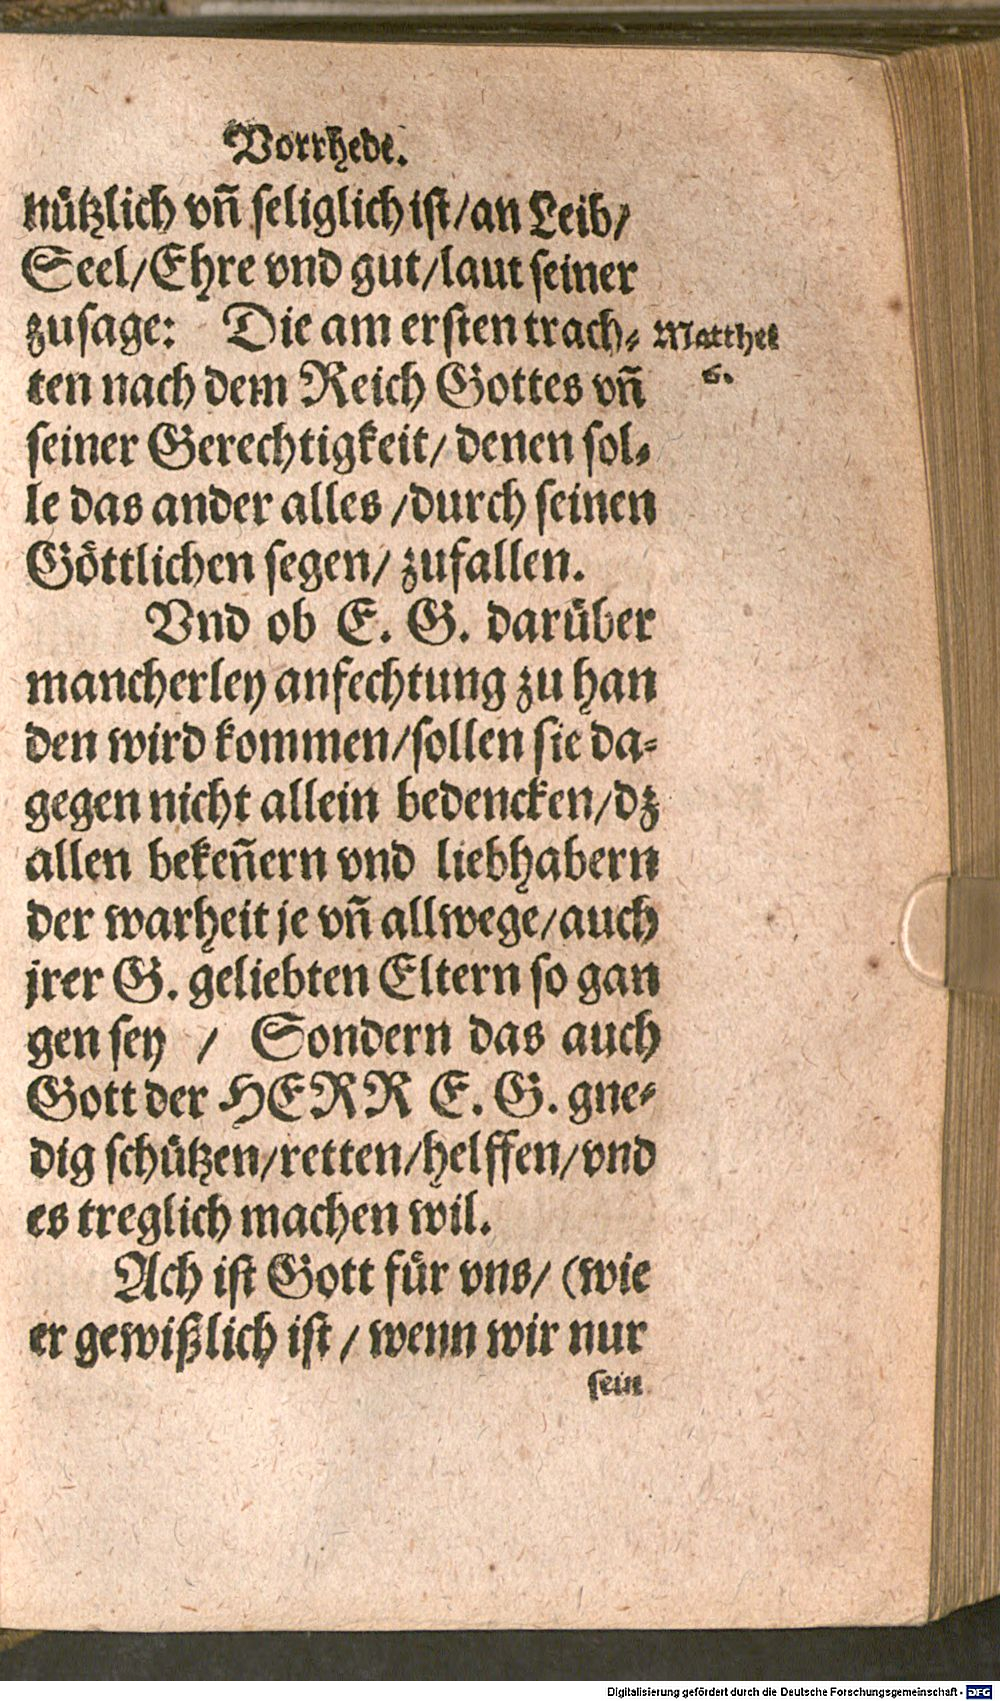 Vorrhede.
nützlich vñ seliglich ist/an Leib/
Seel/Ehre vnd gut/laut seiner
zusage: Die am ersten trach-
Matthei
6.
ten nach dem Reich Gottes vñ
seiner Gerechtigkeit/denen sol-
le das ander alles /durch seinen
Göttlichen segen/ zufallen.
Vnd ob E. G. darüber
mancherley anfechtung zu han
den wird kommen/sollen sie da-
gegen nicht allein bedencken/dz
allen bekeñern vnd liebhabern
der warheit je vñ allwege/auch
jrer G. geliebten Eltern so gan
gen sey / Sondern das auch
Gott der HERR E. G. gne-
dig schützen/retten/helffen/vnd
es treglich machen wil.
Ach ist Gott für vns/ (wie
er gewißlich ist / wenn wir nur
sein
Digitalisierung gefördert durch die Deutsche Forschungsgemeinschaft - DFG